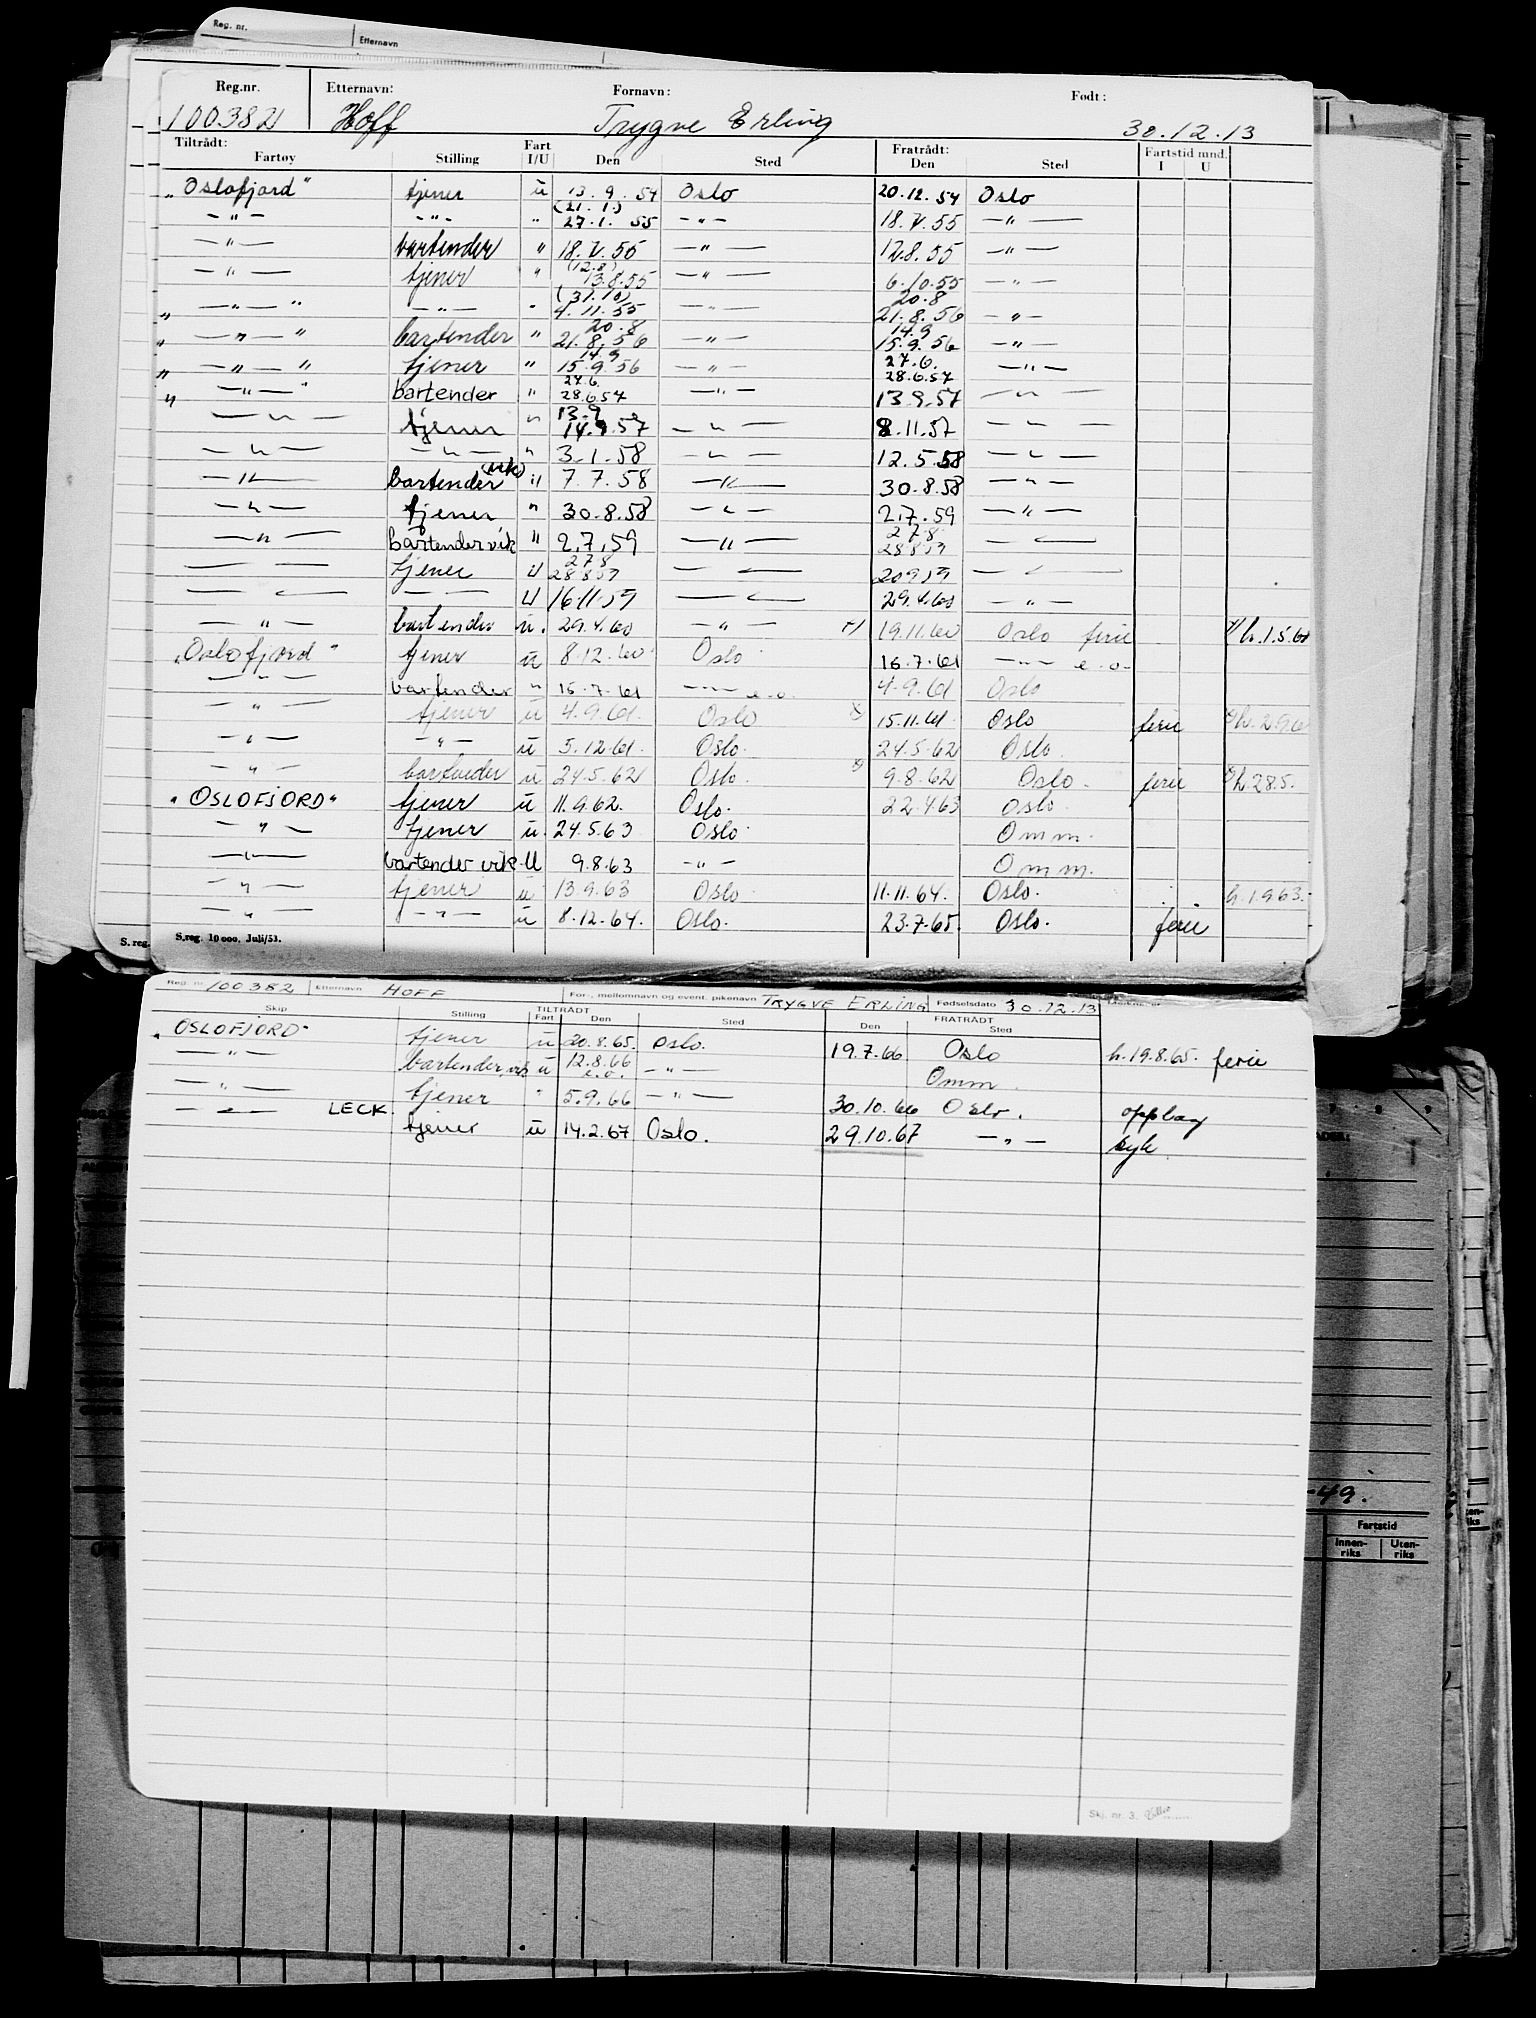 Reg. nr. Etternavn
Reg.nr. Etternavn: Fornavn: Født:
100382 Hoff Trygve Erling 30.12.13
Tiltrådt: Fart Fratrådt: Fartstid mnd.
Fartøy Stilling I/U Den Sted Den Sted I U
"Oslofjord" tjener u 13.9.54 Oslo 20.12.54 Oslo
(21.1.)
-"- -"- " 27.1.55 -"- 18.V.55 -"-
-"- bartender " 18.V.55 -"- 12.8.55 -"-
(12.8)
-"- tjener " 13.8.55 -"- 6.10.55 -"-
(31.10) 20.8
" -"- " -"- " 4.11.55 -"- 21.8.56 -"-
20.8 14.9
" -"- " bartender " 21.8.56 -"- 15.9.56 -"-
14.9 27.6.
" -"- " tjener " 15.9.56 -"- 28.6.57 -"-
27.6.
" -"- " bartender " 28.6.57 -"- 13.9.57 -"-
13.9
-"- tjener " 14.9.57 -"- 8.11.57 -"-
-"- -"- " 3.1.58 -"- 12.5.58 -"-
(vik)
-"- bartender " 7.7.58 -"- 30.8.58 -"-
-"- tjener " 30.8.58 -"- 2.7.59 -"-
27.8
-"- bartender vik " 2.7.59 -"- 28.8.59 -"-
27.8
-"- tjener u 28.8.59 -"- 20.9.59 -"-
-"- -"- u 16.11.59 -"- 29.4.60 -"-
-"- bartender u. 29.4.60 -"- x) 19.11.60 Oslo ferie x) h.1.5.61
"Oslofjord" tjener u 8.12.60 Oslo 16.7.61 -"- e.o.
-"- bartender " 16.7.61 -"- e.o. 4.9.61 Oslo
-"- tjener u 4.9.61. Oslo x) 15.11.61. Oslo ferie x) h.2.9.61
-"- -"- u 5.12.61. Oslo. 24.5.62 Oslo.
-"- bartender u 24.5.62 Oslo. x) 9.8.62 Oslo. ferie x) h 28.5.
"OSLOFJORD" tjener u 11.9.62. Oslo. 22.4.63 Oslo.
-"- tjener u. 24.5.63 Oslo. Omm.
-"- bartender vik. U 9.8.63 -"- Omm.
-"- tjener u 13.9.63 Oslo. 11.11.64. Oslo. h.1.9.63.
-"- -"- u 8.12.64. Oslo. 23.7.65. Oslo. ferie
S. reg. S.reg. 10 000. Juli/53.
Reg. nr. 100382 Etternavn HOFF For-, mellomnavn og event. pikenavn TRYGVE ERLING Fødselsdato 30.12.13
TILTRÅDT FRATRÅDT
Skip Stilling Fart Den Sted Den Sted
"OSLOFJORD" tjener u 20.8.65. Oslo. 19.7.66 Oslo h.19.8.65. ferie
-"- bartender, vik u 12.8.66 -"- Omm.
e.o.
-"- tjener " 5.9.66 -"- 30.10.66 Oslo. opplag
-"- LECK. tjener u 14.2.67 Oslo. 29.10.67 -"- syk.
Skj. nr. 3.
-49.
Fartstid
Innen-riks Uten-riks